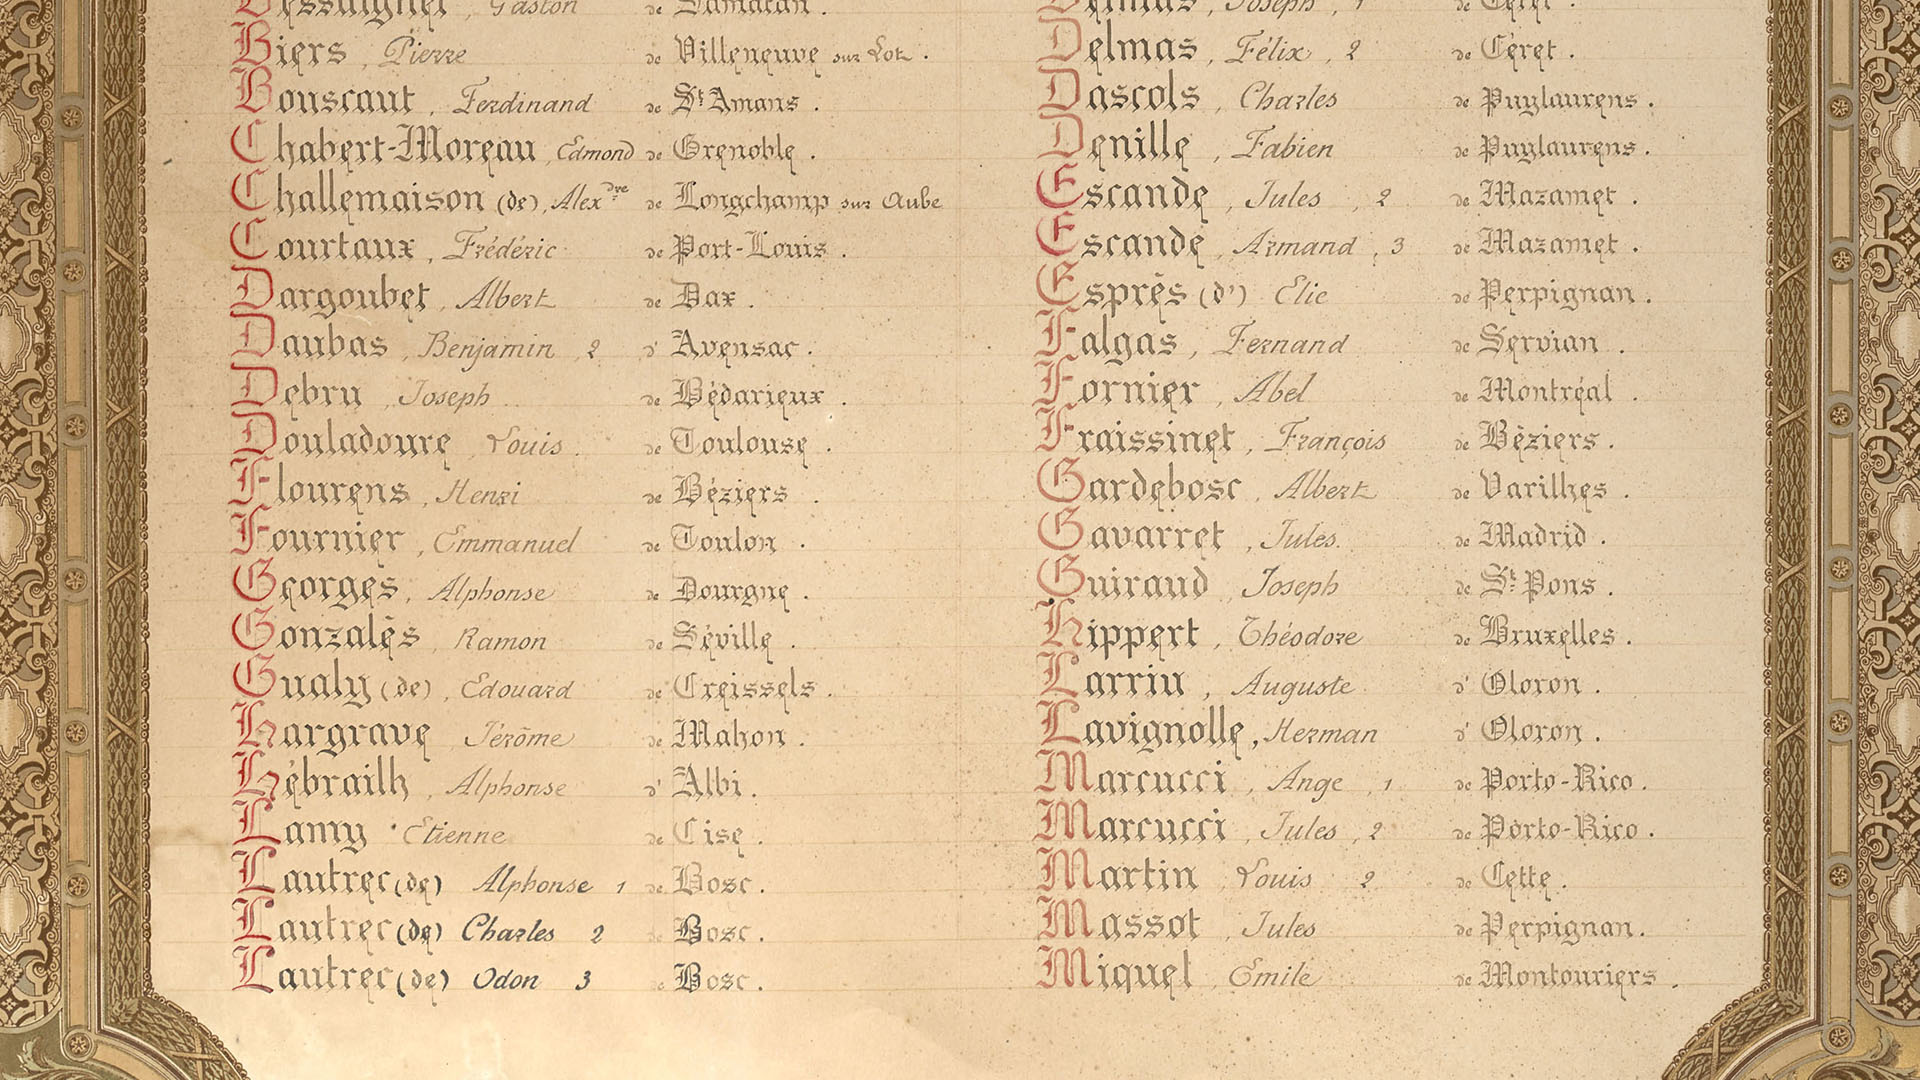 Gaston de Damatan.
Biers, Pierre de Villeneuve sur Lot.
Bouscaut, Ferdinand de St Amans.
Chabert-Moreau, Edmond de Grenoble.
Challemaison (de), Alexdre de Longchamp sur Aube
Courtaux, Frédéric de Port-Louis.
Dargoubet, Albert de Dax.
Daubas, Benjamin, 2 d' Avensac.
Debru, Joseph de Bédarieux.
Douladoure, Louis. de Toulouse.
Flourens, Henri de Béziers.
Fournier, Emmanuel de Toulon.
Georges, Alphonse de Dourgne.
Gonzalès, Ramon de Séville.
Gualy (de), Edouard de Creissels.
Hargrave, Jérôme de Mahon.
Hébrailh, Alphonse d' Albi.
Lamy, Etienne de Cise.
Lautrec (de) Alphonse 1 de Bosc.
Lautrec (de) Charles 2 de Bosc.
Lautrec (de) Odon 3 de Bosc.
Delmas, Joseph, 1 de Céret.
Delmas, Félix, 2 de Céret.
Dascols, Charles de Puylaurens.
Denille, Fabien de Puylaurens.
Escande, Jules, 2 de Mazamet.
Escande, Armand, 3 de Mazamet.
Esprès (d') Elie de Perpignan.
Falgas, Fernand de Servian.
Fornier, Abel de Montréal.
Fraissinet, François de Béziers.
Gardebosc, Albert de Varilhes.
Gavarret, Jules. de Madrid.
Guiraud, Joseph de St Pons.
Hippert, Théodore de Bruxelles.
Larriu, Auguste d' Oloron.
Lavignolle, Herman d' Oloron.
Marcucci, Ange, 1 de Porto-Rico.
Marcucci, Jules, 2 de Porto-Rico.
Martin, Louis 2 de Cette.
Massot, Jules de Perpignan.
Miquel, Emile de Montouriers.